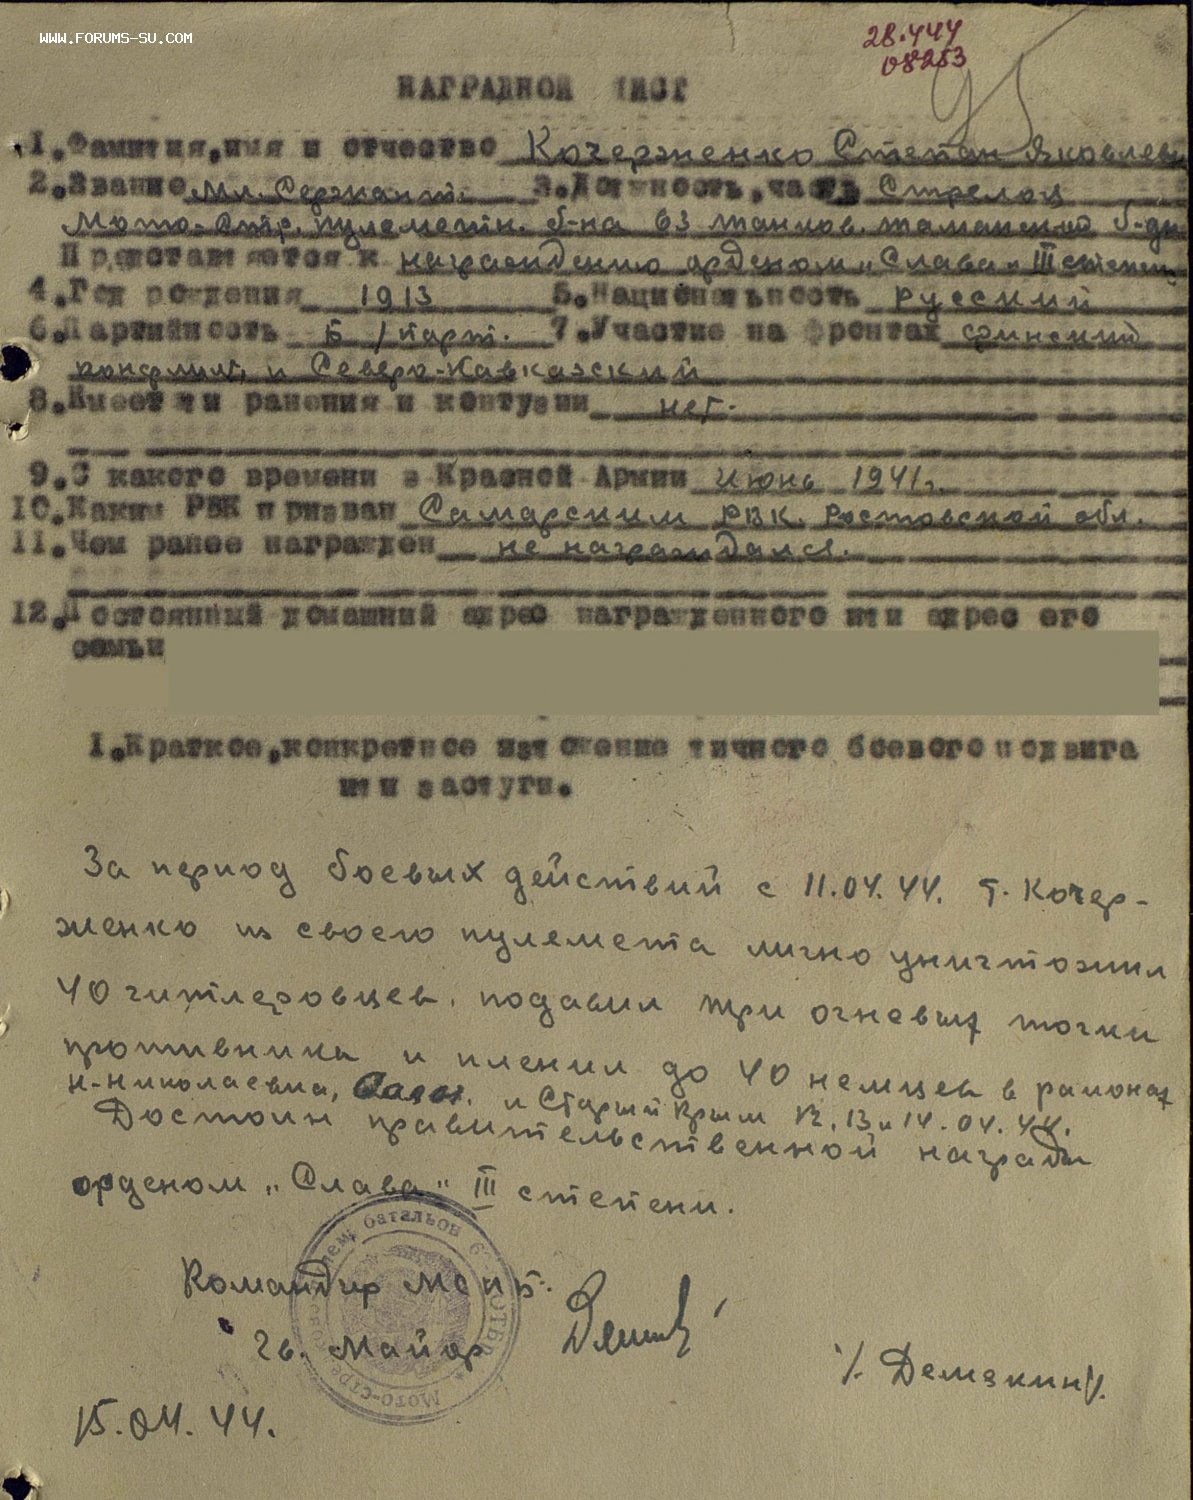 WWW.FORUMS-SU.COM
28.444
08253
НАГРАДНОЙ ЛИСТ
1.Фамилия,имя и отчество Кочерженко Степан Яковлев
2.Звание мл. Сержант. 3.Должность,часть Стрелок
мото-стр. пулеметн. б-на 63 танков. таманской б-ды
Представляется к награждению орденом „Слава" III степени
4.Год рождения 1913 5.Национальность русский
6.Партийность б/парт. 7.Участие на фронтах финский
конфликт, и Северо-Кавказский
8.Имеет ли ранения и контузии нет.
9.С какого времени в Красной Армии июнь 1941г.
10.Каким РВК призван Самарским РВК. Ростовской обл.
11.Чем ранее награжден не награждался.
12.Постоянный домашний адрес награжденного или адрес его
семьи
1.Краткое,конкретное изложение личного боевого подвига
или заслуги.
За период боевых действий с 11.04.44. т. Кочер-
женко из своего пулемета лично уничтожил
40 гитлеровцев. подавил три огневых точки
противника и пленил до 40 немцев в районах
Н-Николаевка, и Старый Крым 12, 13 и 14.04.44.
Достоин правительственной награды
орденом „Слава" III степени.
Командир МСПБ.
гв. Майор
/. Демзкин/.
15.04.44.
батальон
Мото-стре